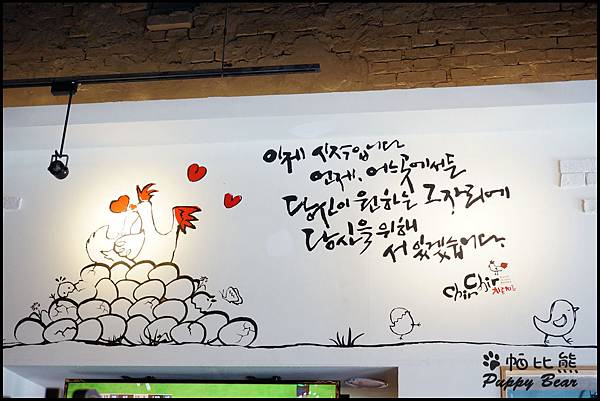 이제 시작입니다
언제, 어느곳에서든
당신이 원하는 그자리에
당신을 위해
서 있겠습니다.
ChirChir
치르치르
帕比熊
Puppy Bear